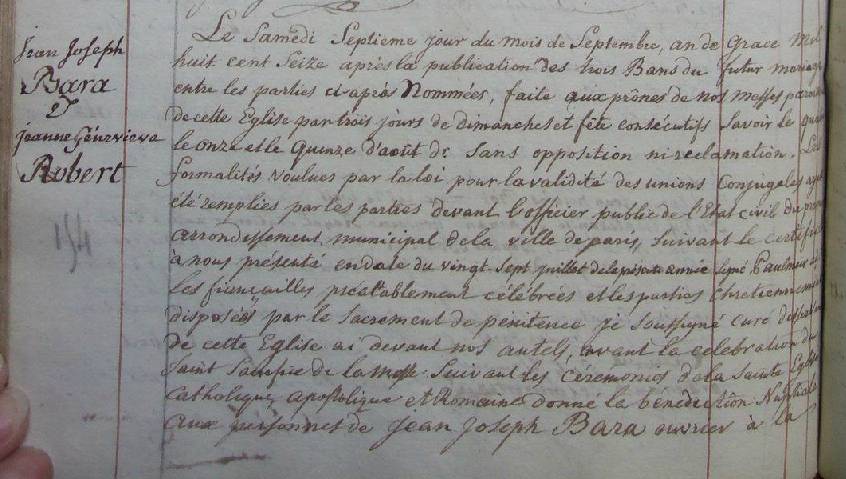 Jean Joseph
Bara
&
Jeanne Génevieve
Robert
154
Le Samedi Septieme jour du mois de Septembre, an de Grace Mil
huit cent Seize après la publication des trois Bans du futur mariage
entre les parties ci après Nommées, faite aux prônes de nos messes
de cette Eglise par trois jours de dimanches et fête consécutifs Savoir le
le onze et le Quinze d'août de Sans opposition ni reclamation. Les
formalités voulues par la loi pour la validité des unions Conjugales
été remplies par les parties devant l'officier public de l'Etat civil du
arrondissement municipal de la ville de paris, suivant le certificat
à nous présenté en date du vingt Sept juillet de la présente année signé
Les fiançailles préalablement célébrées et les parties Chretiennement
disposées par le Sacrement de pénitence je Soussigné curé
de cette Eglise ai devant nos autels, avant la celebration du
Saint Sacrifice de la Messe Suivant les cérémonies de la Sainte Eglise
Catholique, apostolique et Romaine donné la bénédiction Nuptiale
aux personnes de Jean Joseph Bara ouvrier à la